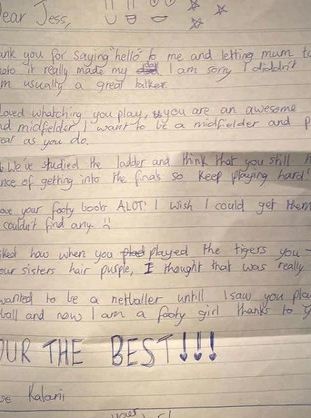 ear Jess,
ank you for saying "hello" to me and letting mum t
oto it really made my I am sorry I diddn't
m usually a great talker.
oved whatching you play, you are an awesome
d midfielder, I want to be a midfielder and p
eat as you do.
We've studied the ladder and think that you still h
nce of getting into the finals so keep playing hard!
ove your footy books ALOT! I wish I could get them
couldn't find any.
iked how when you played the tigers you
our sisters hair purple, I thought that was really
wanted to be a netballer untill I saw you play
ball and now I am a footy girl thanks to y
OUR THE BEST!!!
se Kalani